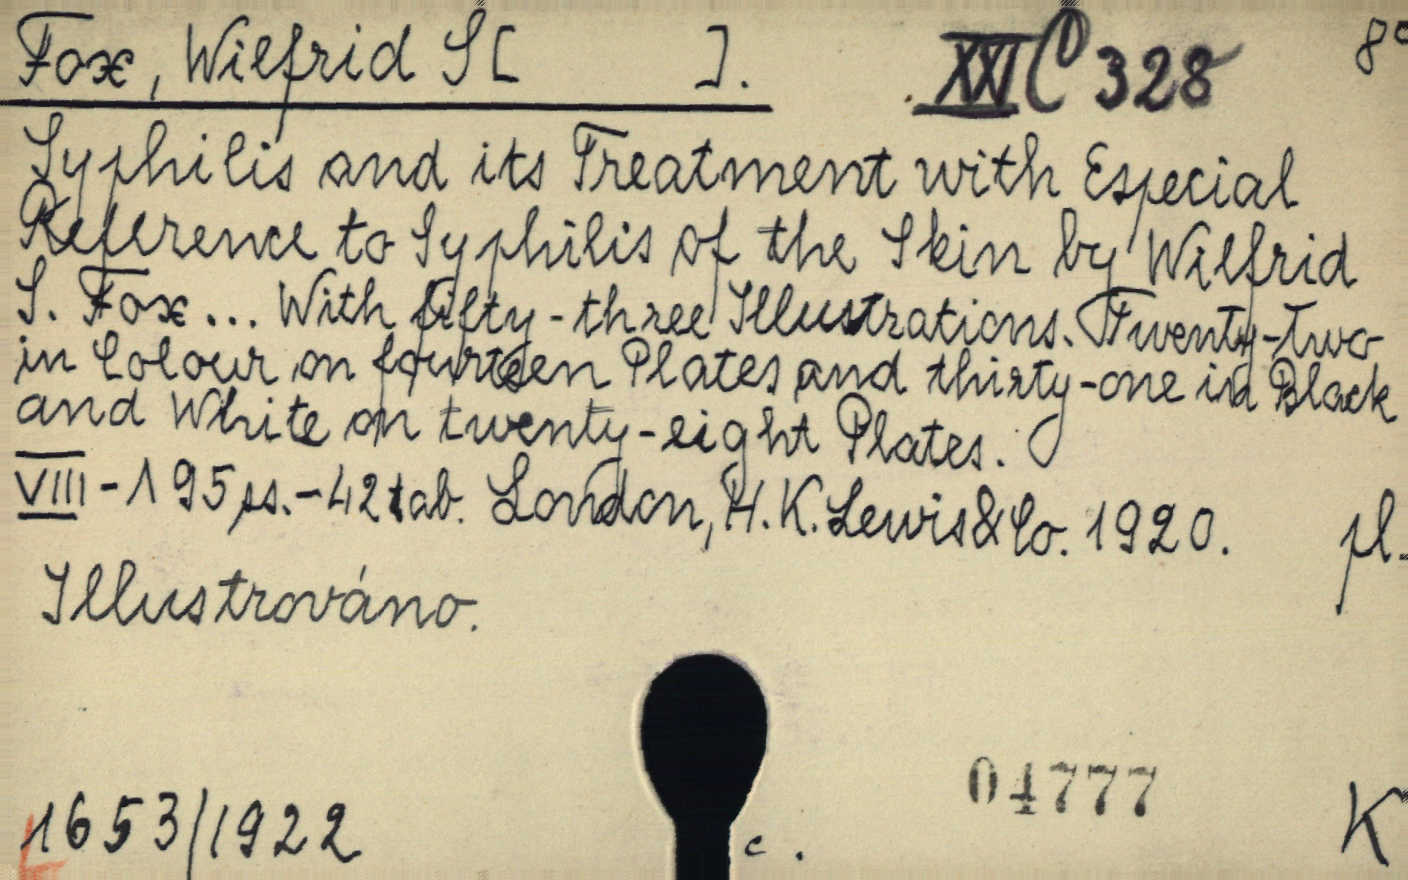 Fox, Wilfrid S[ ]. XXI C 328 8°
Syphilis and its Treatment with Especial
Reference to Syphilis of the Skin by Wilfrid
S. Fox... With fifty-three Illustrations. Twenty-two
in Colour on fourteen Plates and thirty-one in Black
and White on twenty-eight Plates.
VIII-195 ss.-42 tab. London, H. K. Lewis & Co. 1920. pl.
Illustrováno.
04777
1653/1922 c. K